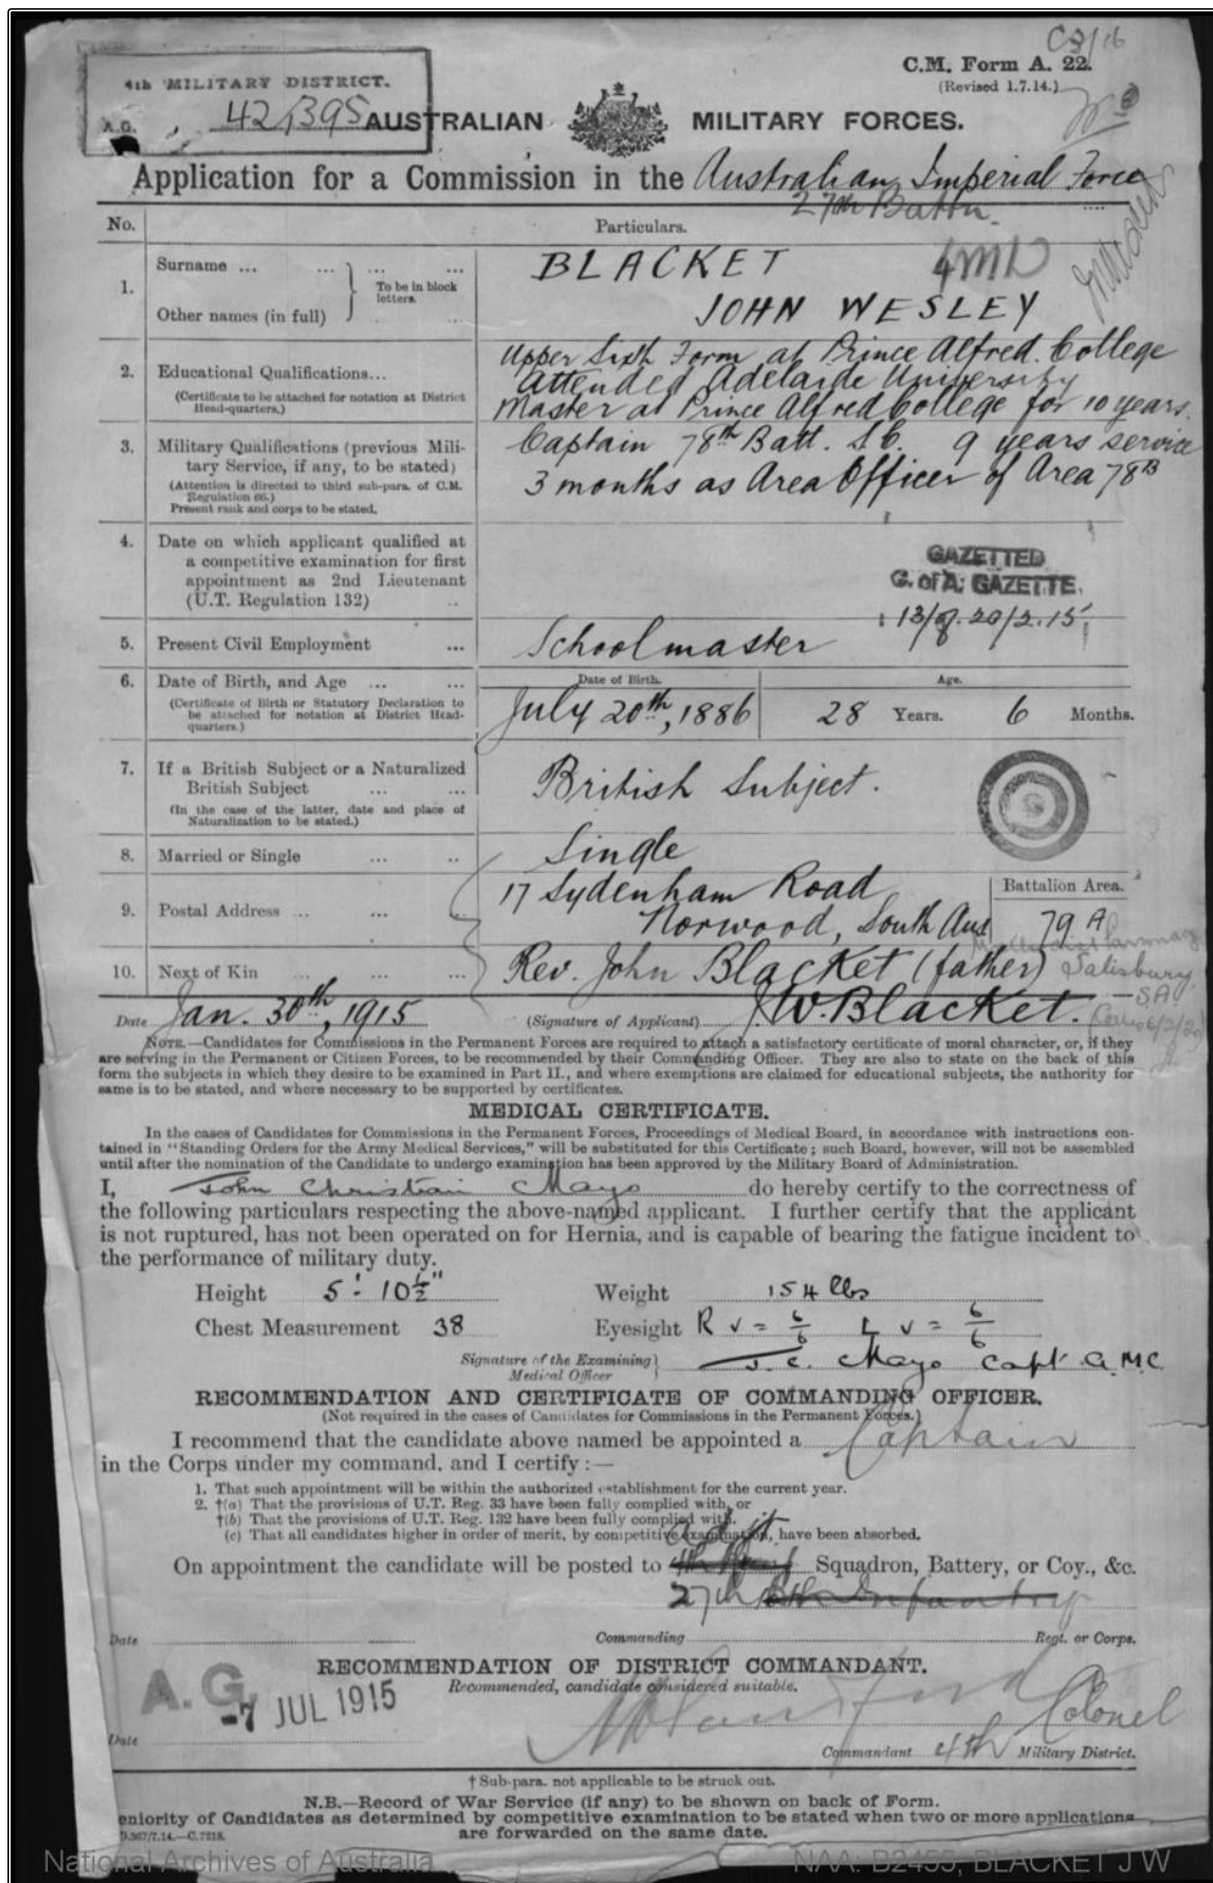 C3/16
C.M. Form A. 22.
(Revised 1.7.14.)
4th MILITARY DISTRICT.
A.G. 42/395
AUSTRALIAN MILITARY FORCES.
Application for a Commission in the Australian Imperial Force
27th Battn.
No. Particulars.
1. Surname ... ... ... ... BLACKET 4 MD
To be in block letters.
Other names (in full) JOHN WESLEY
2. Educational Qualifications... Upper Sixth Form at Prince Alfred College
Attended Adelaide University
(Certificate to be attached for notation at District Head-quarters.) Master at Prince Alfred College for 10 years.
3. Military Qualifications (previous Mili-
tary Service, if any, to be stated) Captain 78th Batt. S.C. 9 years service
(Attention is directed to third sub-para. of C.M. Regulation 66.) 3 months as Area Officer of Area 78B
Present rank and corps to be stated.
4. Date on which applicant qualified at
a competitive examination for first
appointment as 2nd Lieutenant
(U.T. Regulation 132) ..
GAZETTED
C. of A. GAZETTE.
13/ 20/2.15
5. Present Civil Employment ... Schoolmaster
6. Date of Birth, and Age ... ... Date of Birth. Age.
(Certificate of Birth or Statutory Declaration to
be attached for notation at District Head-
quarters.) July 20th, 1886 28 Years. 6 Months.
7. If a British Subject or a Naturalized
British Subject ... ... British Subject.
(In the case of the latter, date and place of
Naturalization to be stated.)
8. Married or Single ... .. Single
9. Postal Address ... ... 17 Sydenham Road
Norwood, South Aus
Battalion Area.
79 A
10. Next of Kin ... ... ... Rev. John Blacket (father)
Methodist Parsonage
Salisbury
SA
Date Jan. 30th, 1915 (Signature of Applicant) J.W. Blacket.
NOTE.—Candidates for Commissions in the Permanent Forces are required to attach a satisfactory certificate of moral character, or, if they
are serving in the Permanent or Citizen Forces, to be recommended by their Commanding Officer. They are also to state on the back of this
form the subjects in which they desire to be examined in Part II., and where exemptions are claimed for educational subjects, the authority for
same is to be stated, and where necessary to be supported by certificates.
MEDICAL CERTIFICATE.
In the cases of Candidates for Commissions in the Permanent Forces, Proceedings of Medical Board, in accordance with instructions con-
tained in "Standing Orders for the Army Medical Services," will be substituted for this Certificate; such Board, however, will not be assembled
until after the nomination of the Candidate to undergo examination has been approved by the Military Board of Administration.
I, John Christian Mayo do hereby certify to the correctness of
the following particulars respecting the above-named applicant. I further certify that the applicant
is not ruptured, has not been operated on for Hernia, and is capable of bearing the fatigue incident to
the performance of military duty.
Height 5' 10½" Weight 154 lbs
Chest Measurement 38 Eyesight R v = 6/6 L v = 6/6
Signature of the Examining Medical Officer J. C. Mayo Capt A.M.C.
RECOMMENDATION AND CERTIFICATE OF COMMANDING OFFICER.
(Not required in the cases of Candidates for Commissions in the Permanent Forces.)
I recommend that the candidate above named be appointed a Captain
in the Corps under my command, and I certify :—
1. That such appointment will be within the authorized establishment for the current year.
2. †(a) That the provisions of U.T. Reg. 33 have been fully complied with, or
†(b) That the provisions of U.T. Reg. 132 have been fully complied with.
(c) That all candidates higher in order of merit, by competitive examination, have been absorbed.
Adjt
On appointment the candidate will be posted to Squadron, Battery, or Coy., &c.
27th Infantry
Date Commanding Regt. or Corps.
RECOMMENDATION OF DISTRICT COMMANDANT.
Recommended, candidate considered suitable.
A.G.
-7 JUL 1915
Colonel
Date Commandant 4th Military District.
† Sub-para. not applicable to be struck out.
N.B.—Record of War Service (if any) to be shown on back of Form.
eniority of Candidates as determined by competitive examination to be stated when two or more applications
are forwarded on the same date.
D.567/7.14.—C.7218.
National Archives of Australia NAA: B2455, BLACKET J W